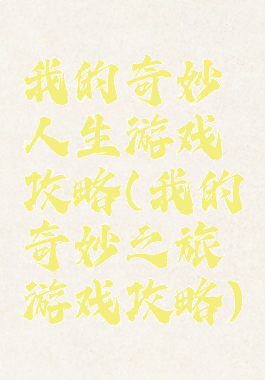 我的奇妙
人生游戏
攻略(我的
奇妙之旅
游戏攻略)